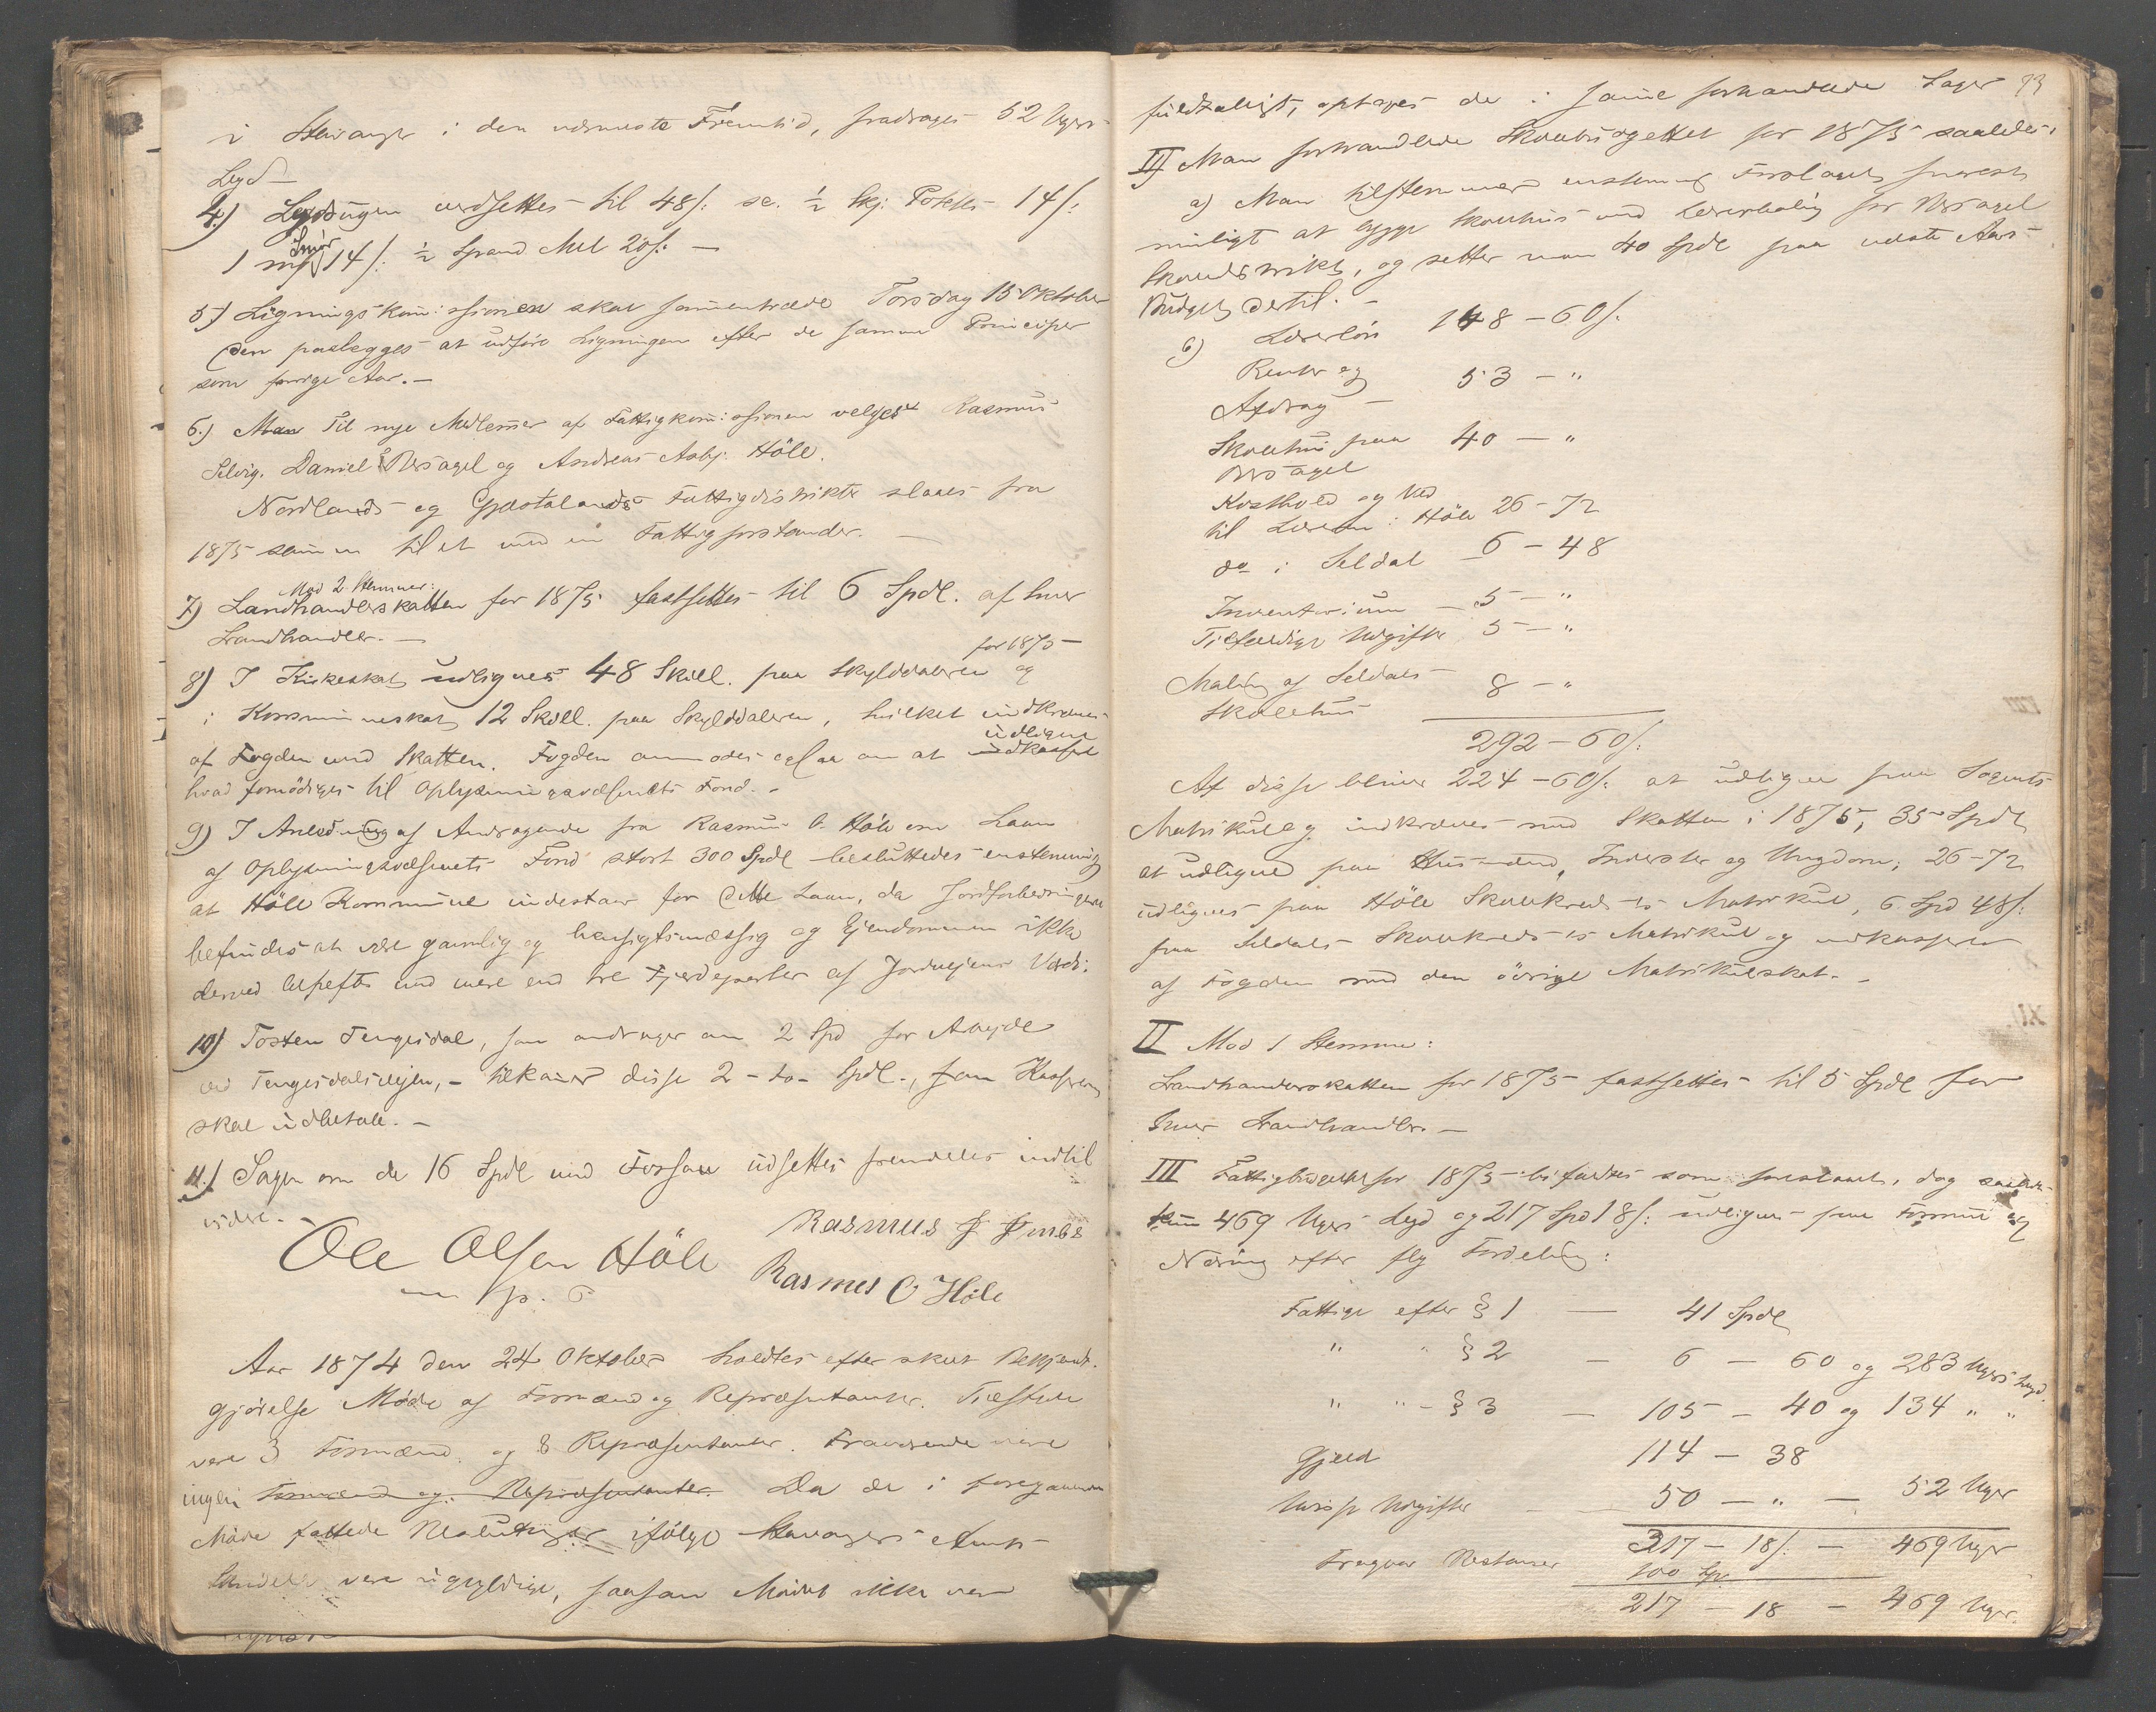 i Stavanger i den udmeste Fremtid, fradrages 52 Ugers
Legd
4) Legdsugen ansættes til 48/: sc. ½ Skj: Potetes 14/:
1 mp Smör 14/: ½ Spand Mel 20/: —
5) Ligningskommissionen skal sammentræde Torsdag 15 Oktober
Den paalægges at udföre Ligningen efter de samme Principer
som forrige Aar. —
6.) Man Til nye Medlemmer af Fattigkommissionen velges Rasmus
Selvig, Daniel Bersagel og Andreas Asbj: Höle.
Nordlands og Gjæstalands Fattigdistrikter slaaes fra
1875 sammen til et med en Fattigforstander. —
Mod 2 Stemmer:
7) Landhandlerskatten for 1875 fastsettes til 6 Spdl. af hver
Landhandler. —
for 1875
8) I Kirkeskat udlignes 48 Skill. paa Skylddaleren og
i Kommuneskat 12 Skill. paa Skylddaleren, hvilket indkræves
af Fogden med Skatten. Fogden anmodes ogsaa om at udligne indkassere
hvad fornödiges til Oplysningsvæsenets Fond. —
9) I Anledning af Andragende fra Rasmus O. Höle om Laan
af Oplysningsvæsenets Fond stort 300 Spdl besluttedes enstemmig
at Höle Kommune indestaar for dette Laan, da Jordforbedringerne
befindes at være gavnlig og hensigtsmæssig og Eiendommen ikke
derved behefte med mere end tre Fjerdeparter af Jordveiens Værdi.
10) Tosten Tengesdal, som andrager om 2 Spd for Arbejde
ved Tengesdalsvejen, — tilkommer disse 2 - to - Spdl., som Kassereren
skal udbetale. —
11.) Sagen om de 16 Spdl med Fossan udsettes fremdeles indtil
videre.
Ole Olsen Höle
Rasmus O Höle
Aar 1874 den 24 Oktober holdtes efter skeet Bekjendt-
gjörelse Möde af Formænd og Repræsentanter. Tilstede
vare 3 Formænd og 8 Repræsentanter. Fraværende vare
ingen Formænd og Repræsentanter. Da de i foregaaende
Möde fattede Beslutninger ifölge Stavangers Amt
vare ugyldige, saasom Mödet ikke var
73
fuldtalligt, optoges de i samme forhandlede Sager
I) Man forhandlede Skolebudgettet for 1875 saaledes:
a) Man tilstemmer enstemmig Forslaget snarest
muligt at bygge Skolehus med Lærerbolig for Bersagel
Skoledistrikt, og sætter man 40 Spdl paa næste Aars
Budget dertil. —
b) Lærerlön 148 – 60/:
Renter og
Afdrag – 53 – „
Skolehus paa 40 – „
Bersagel
Kosthold og Ved
til Læreren i Höle 26 – 72
do i Seldal 6 – 48
Inventarium – 5 – „
Tilfældige Udgifter 5 – „
Maling af Seldals
Skolehus 8 – „
292 – 60/:
Af disse bliver 224 – 60/: at udligne paa Sognets
Matrikul og indkræves med Skatten i 1875, 35 Spdl
at udligne paa Husmænd, Inderster og Ungdom; 26–72
udlignes paa Höle Skolekreds's Matrikul, 6 Spd 48/:
paa Seldals Skolekreds's Matrikul og indkasseres
af Fogden med den övrige Matrikulskat. —
II Mod 1 Stemme:
Landhandlerskatten for 1875 fastsettes til 5 Spdl for
hver Landhandler. —
III Fattigbudgettet for 1875 bifaldtes som foreslaaet, dog
kun 469 Ugers Legd og 217 Spd 18/: udlignes paa Formue og
Næring efter flg Fordeling:
Fattige efter § 1 — 41 Spdl
„ „ § 2 – 6 – 60 og 283 Ugers Legd
„ „ – § 3 – 105 – 40 og 134 „ „
Gjeld 114 – 38
Uvisse Udgifter – 50 – „ – 52 Uger
317 – 18/: – 469 Uger
Fragaar Restanser 100 Spd
217 – 18 – 469 Uger.